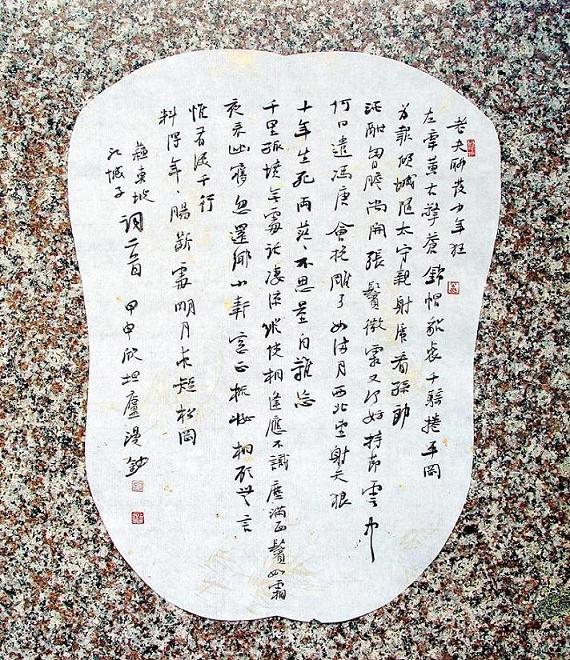 老夫聊發少年狂
左牽黃右擎蒼錦帽貂裘千騎捲平岡
為報傾城隨太守親射虎看孫郎
酒酣胸膽尚開張鬢微霜又何妨持節雲中
何日遣馮唐會挽雕弓如滿月西北望射天狼
十年生死兩茫々不思量自難忘
千里孤墳無處話淒涼縱使相逢應不識塵滿面鬢如霜
夜來幽夢忽還鄉小軒窗正梳妝相顧無言
惟有淚千行
料得年々腸斷處明月夜短松岡
蘇東坡
江城子
詞二首 甲申欣坦廬漫鈔